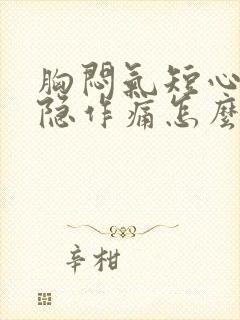 胸悶氣短心
隐作痛怎麽
辛柑